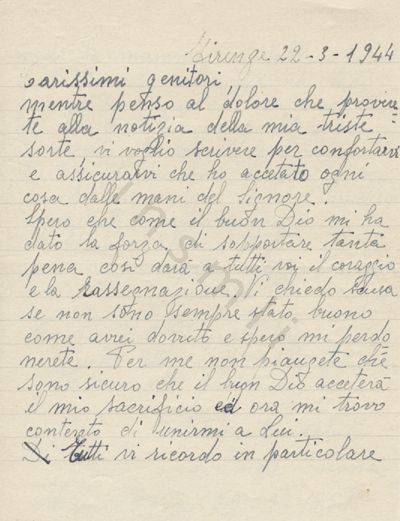 Firenze 22-3-1944
carissimi genitori
mentre penso al dolore che provere=
te alla notizia della mia triste
sorte, vi voglio scrivere per confortarvi
e assicurarvi che ho accetato ogni
cosa dalle mani del Signore.
Spero che come il buon Dio mi ha
dato la forza di sopportare tanta
pena così darà a tutti voi il coraggio
e la rassegnazione. Vi chiedo scusa
se non sono sempre stato buono
come avrei dovuto e spero mi perdo
nerete. Per me non piangete chè
sono sicuro che il buon Dio acceterà
il mio sacrificio ed ora mi trovo
contento di unirmi a Lui.
Di tutti vi ricordo in particolare